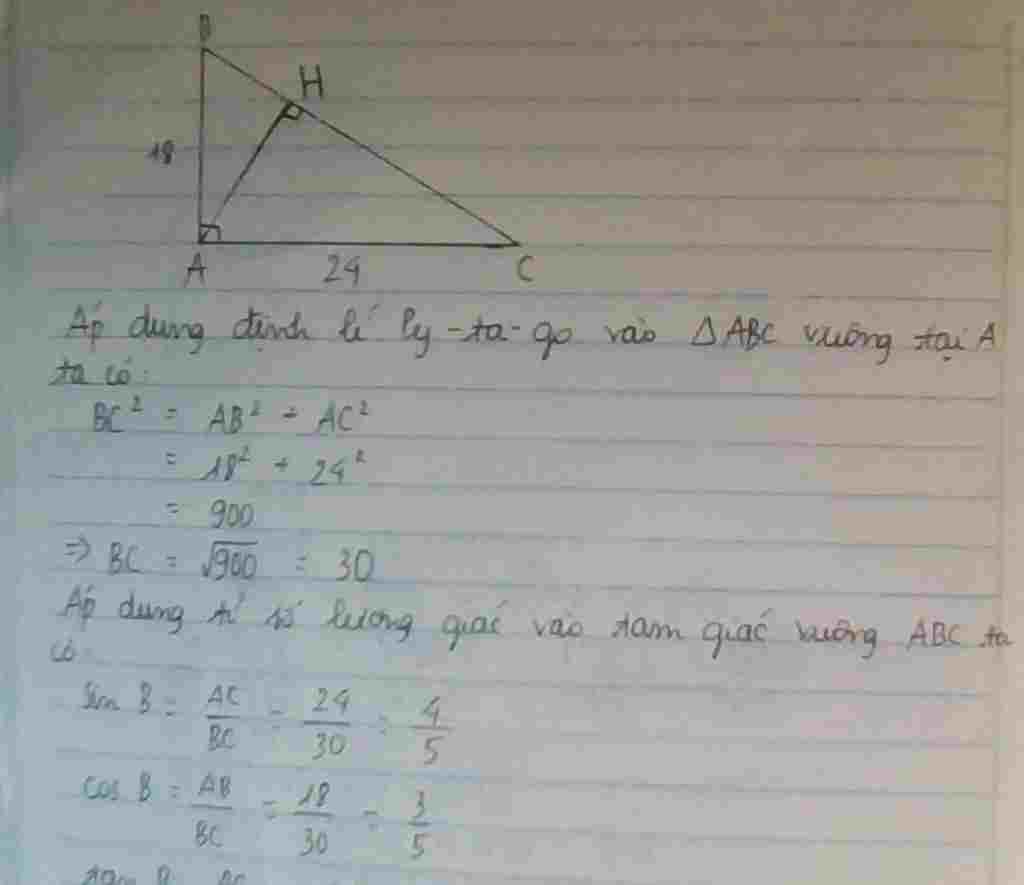 B
H
18
A
24
C
Áp dụng định lí Py-ta-go vào △ABC vuông tại A
ta có:
BC² = AB² + AC²
= 18² + 24²
= 900
=> BC = √900 = 30
Áp dụng tỉ số lượng giác vào tam giác vuông ABC ta
có
Sin B = AC/BC = 24/30 = 4/5
cos B = AB/BC = 18/30 = 3/5